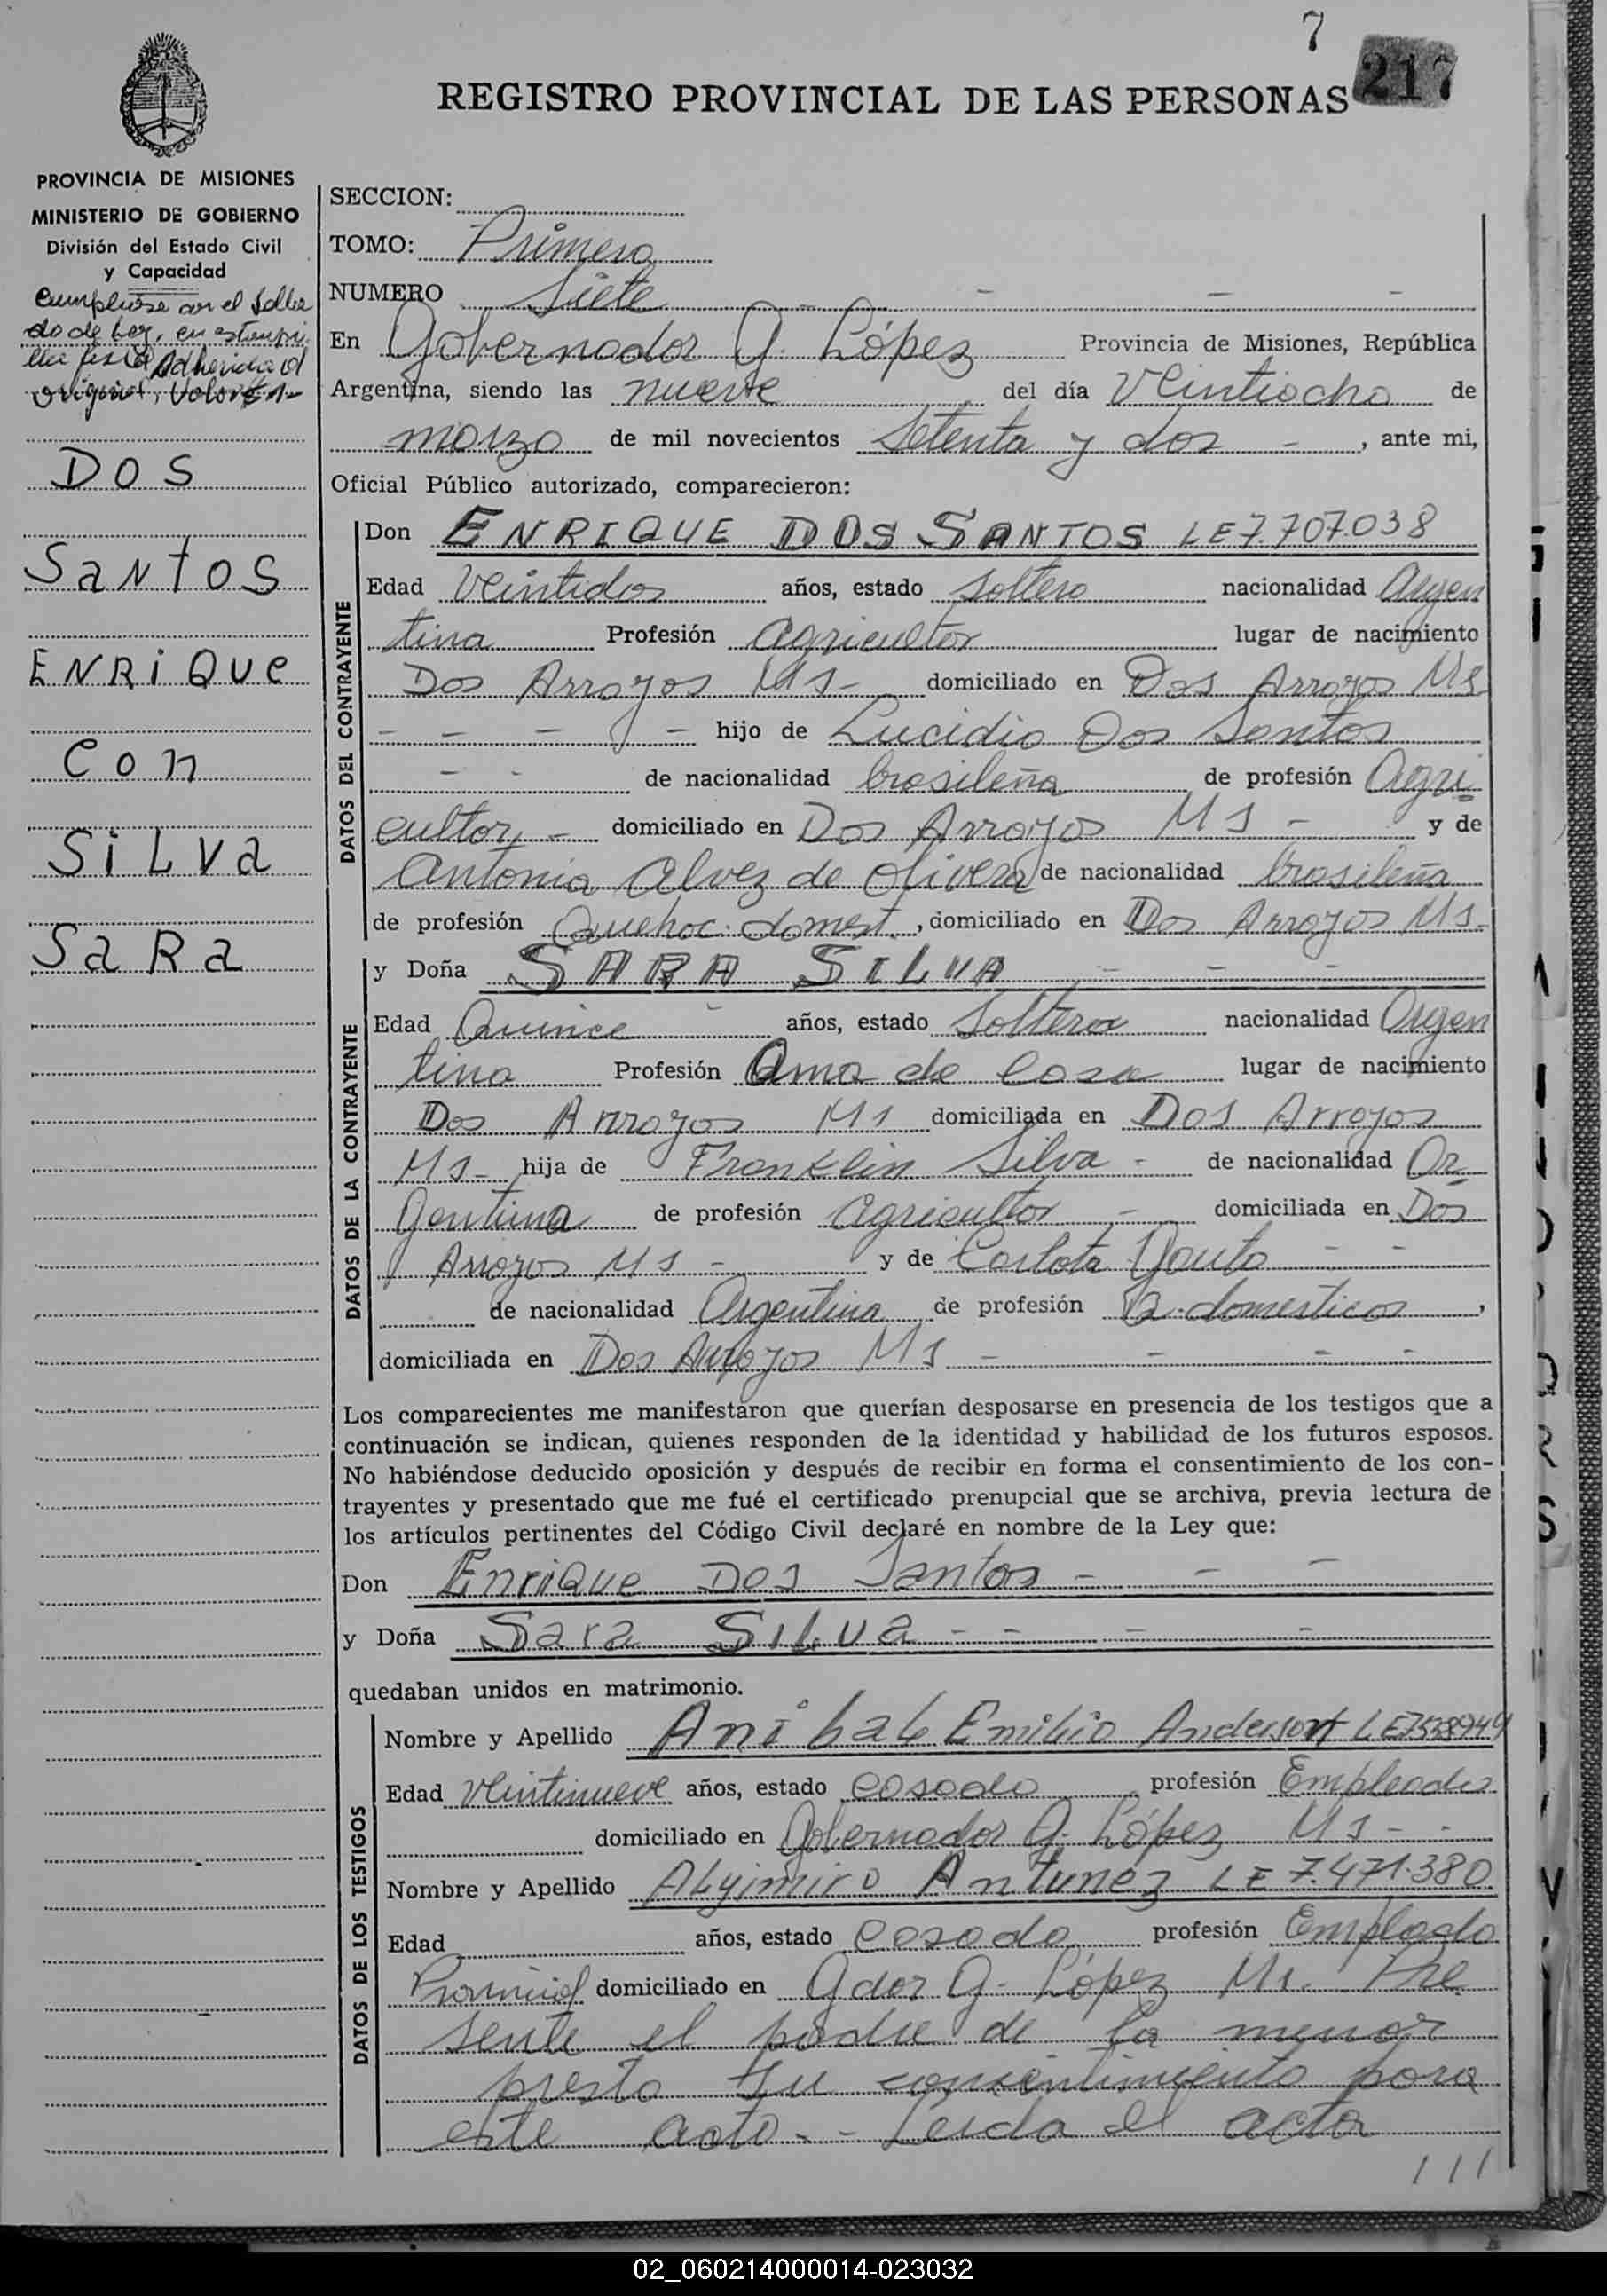 7
217
REGISTRO PROVINCIAL DE LAS PERSONAS
PROVINCIA DE MISIONES
MINISTERIO DE GOBIERNO
División del Estado Civil
y Capacidad
Cumpliose con el Sella
do de Ley, en estampi
lla fiscal Adherida al
original, Valor $
DOS
SANTOS
ENRIQUE
CON
SILVA
SARA
SECCION:
TOMO: Primero
NUMERO Siete - - - -
En Gobernador G. López Provincia de Misiones, República
Argentina, siendo las nueve del día Veintiocho de
marzo de mil novecientos Setenta y dos - , ante mi,
Oficial Público autorizado, comparecieron:
DATOS DEL CONTRAYENTE
Don ENRIQUE DOS SANTOS LE 7.707.038
Edad Veintidos años, estado Soltero nacionalidad Argen
tina Profesión Agricultor lugar de nacimiento
Dos Arroyos Ms- domiciliado en Dos Arroyos Ms
- - - - hijo de Lucidio Dos Santos
- - de nacionalidad brasileña de profesión Agri
cultor, - domiciliado en Dos Arroyos Ms - y de
Antonia Alvez de Olivera de nacionalidad brasileña
de profesión Quehac. domest. , domiciliado en Dos Arroyos Ms.
DATOS DE LA CONTRAYENTE
y Doña SARA SILVA - - -
Edad Quince años, estado Soltera nacionalidad Argen
tina Profesión Ama de Casa lugar de nacimiento
Dos Arroyos Ms domiciliada en Dos Arroyos
Ms- hija de Franklin Silva - de nacionalidad Ar
gentina de profesión Agricultor - domiciliada en Dos
Arroyos Ms - y de Carlota - -
de nacionalidad Argentina de profesión Q. domesticos ,
domiciliada en Dos Arroyos Ms - - - -
Los comparecientes me manifestaron que querían desposarse en presencia de los testigos que a
continuación se indican, quienes responden de la identidad y habilidad de los futuros esposos.
No habiéndose deducido oposición y después de recibir en forma el consentimiento de los con-
trayentes y presentado que me fué el certificado prenupcial que se archiva, previa lectura de
los artículos pertinentes del Código Civil declaré en nombre de la Ley que:
Don Enrique Dos Santos - - -
y Doña Sara Silva - - - -
quedaban unidos en matrimonio.
DATOS DE LOS TESTIGOS
Nombre y Apellido Anibal Emilio Anderson LE
Edad Veintinueve años, estado casado profesión Empleado
domiciliado en Gobernador G. López Ms - -
Nombre y Apellido Alyimiro Antunez LE 7.471.380
Edad años, estado Casado profesión Emplado
Provincial domiciliado en Gdor G. López Ms. Pre
sente el padre de la menor
presta su consentimiento para
este acto. - Leida el acta
///
02_060214000014-023032